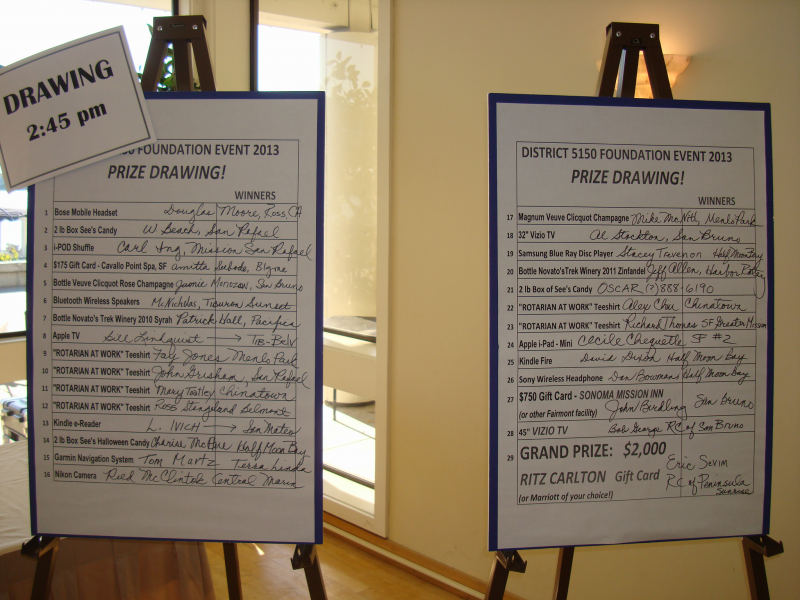 DRAWING
2:45 pm
50 FOUNDATION EVENT 2013
PRIZE DRAWING!
WINNERS
1 Bose Mobile Headset Douglas Moore, Ross, CA
2 2 lb Box See's Candy W Beach, San Rafael
3 i-POD Shuffle Carl Ang, Mission San Rafael
4 $175 Gift Card - Cavallo Point Spa, SF
5 Bottle Veuve Clicquot Rose Champagne Jamie San Bruno
6 Bluetooth Wireless Speakers McNicholas, Tiburon Sunset
7 Bottle Novato's Trek Winery 2010 Syrah Patrick Hall, Pacifica
8 Apple TV Bill Lindquist → TIB-Belv
9 "ROTARIAN AT WORK" Teeshirt Fay Jones Menlo Park
10 "ROTARIAN AT WORK" Teeshirt John Grisham, San Rafael
11 "ROTARIAN AT WORK" Teeshirt Mary Chinatown
12 "ROTARIAN AT WORK" Teeshirt Ross Belmont
13 Kindle e-Reader L. IVICH → San Mateo
14 2 lb Box See's Halloween Candy Charise Half Moon Bay
15 Garmin Navigation System Tom Martz Terra Linda
16 Nikon Camera Reed McClintok Central Marin
DISTRICT 5150 FOUNDATION EVENT 2013
PRIZE DRAWING!
WINNERS
17 Magnum Veuve Clicquot Champagne Mike Menlo Park
18 32" Vizio TV Al Stockton, San Bruno
19 Samsung Blue Ray Disc Player Stacey Trevenon Half Moon Bay
20 Bottle Novato'sTrek Winery 2011 Zinfandel Jeff Allen, Harbor
21 2 lb Box of See's Candy OSCAR (?) 888-6190
22 "ROTARIAN AT WORK" Teeshirt Alex Chu Chinatown
23 "ROTARIAN AT WORK" Teeshirt Richard Thomas SF Greater Mission
24 Apple i-Pad - Mini Cecile Chiquette SF #2
25 Kindle Fire David Dixon Half Moon Bay
26 Sony Wireless Headphone Dan Bowmans Half Moon Bay
27 $750 Gift Card - SONOMA MISSION INN
(or other Fairmont facility) John San Bruno
28 45" VIZIO TV Bob George RC of San Bruno
29 GRAND PRIZE: $2,000
RITZ CARLTON Gift Card
(or Marriott of your choice!)
Eric Sevim
RC of Peninsula
Sunrise